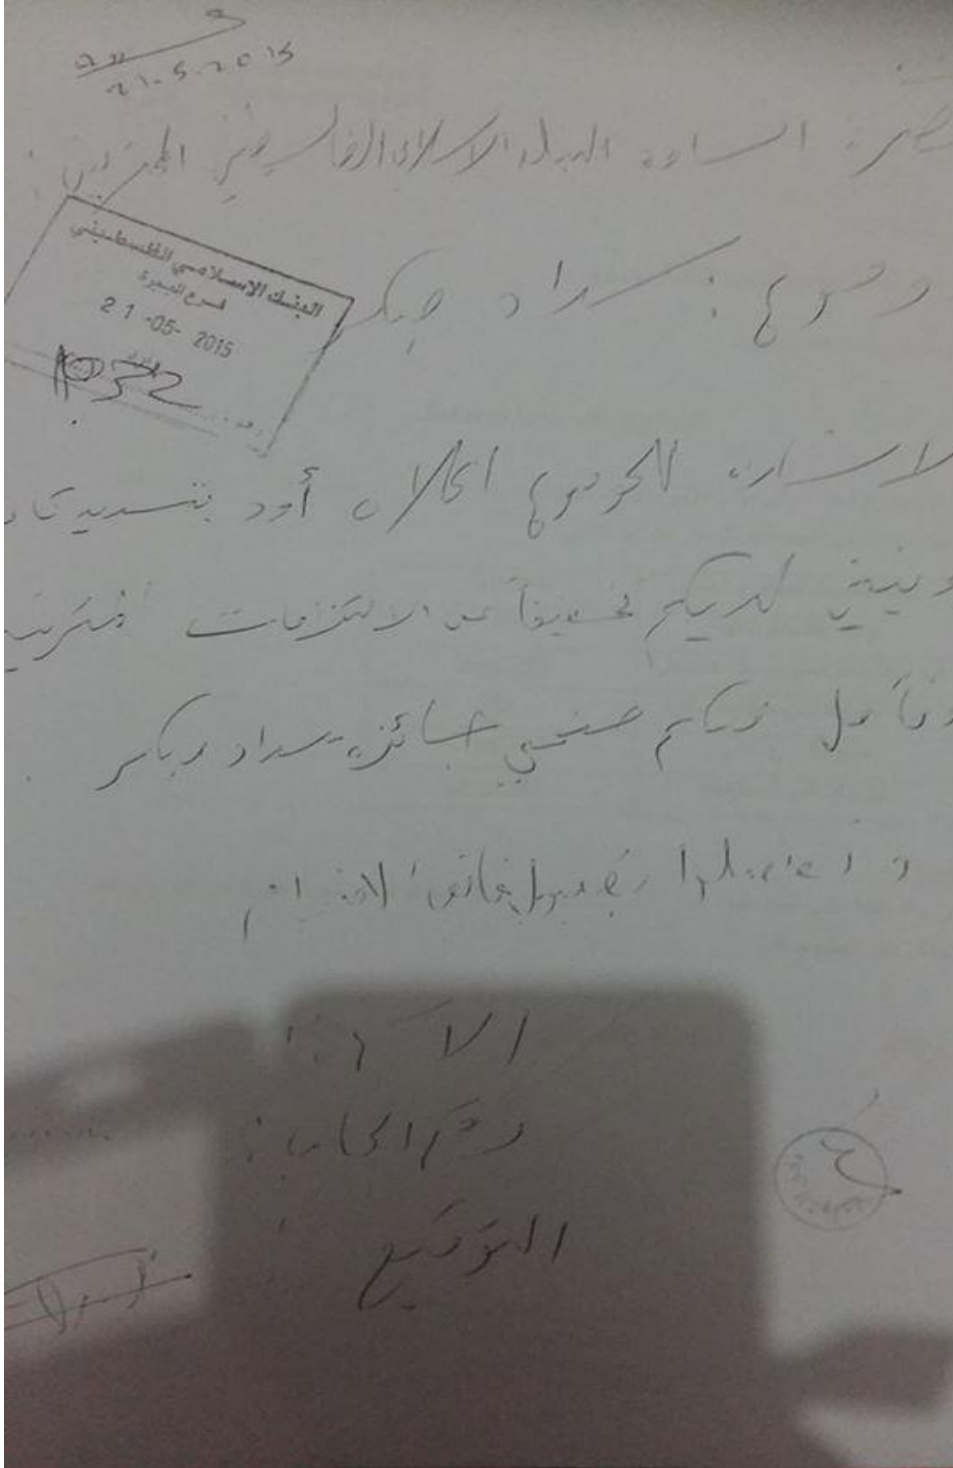 21-5-2015
السادة البنك الاسلامي الفلسطيني المحترمين :
البنك الاسلامي الفلسطيني
فرع البيرة
21-05-2015
وضوع : سداد مبكر
لاشارة للموضوع اعلاه أود بتسديد
لديكم تخفيفاً من الالتزامات
منكم منحي جائزة سداد مبكر
و تفضلوا بقبول فائق الاحترام
الاسم :
رقم الحساب :
التوقيع :